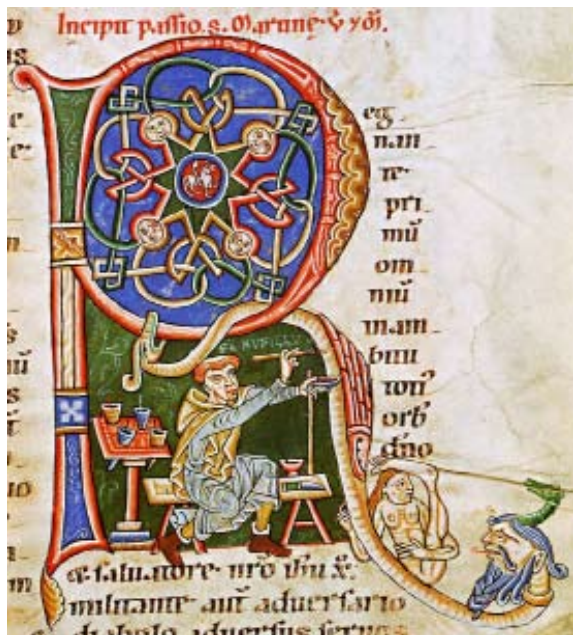 Incipit passio. s. Martinę.
eg
nan
te.
pri
mū
om
niū
inam
bitu
toti᷒
orb
dn̄o
FR RVFILLV
& saluatore. nr̄o ih̄u x̄.
militante. aut̄ aduersario
diabolo aduersus seruos